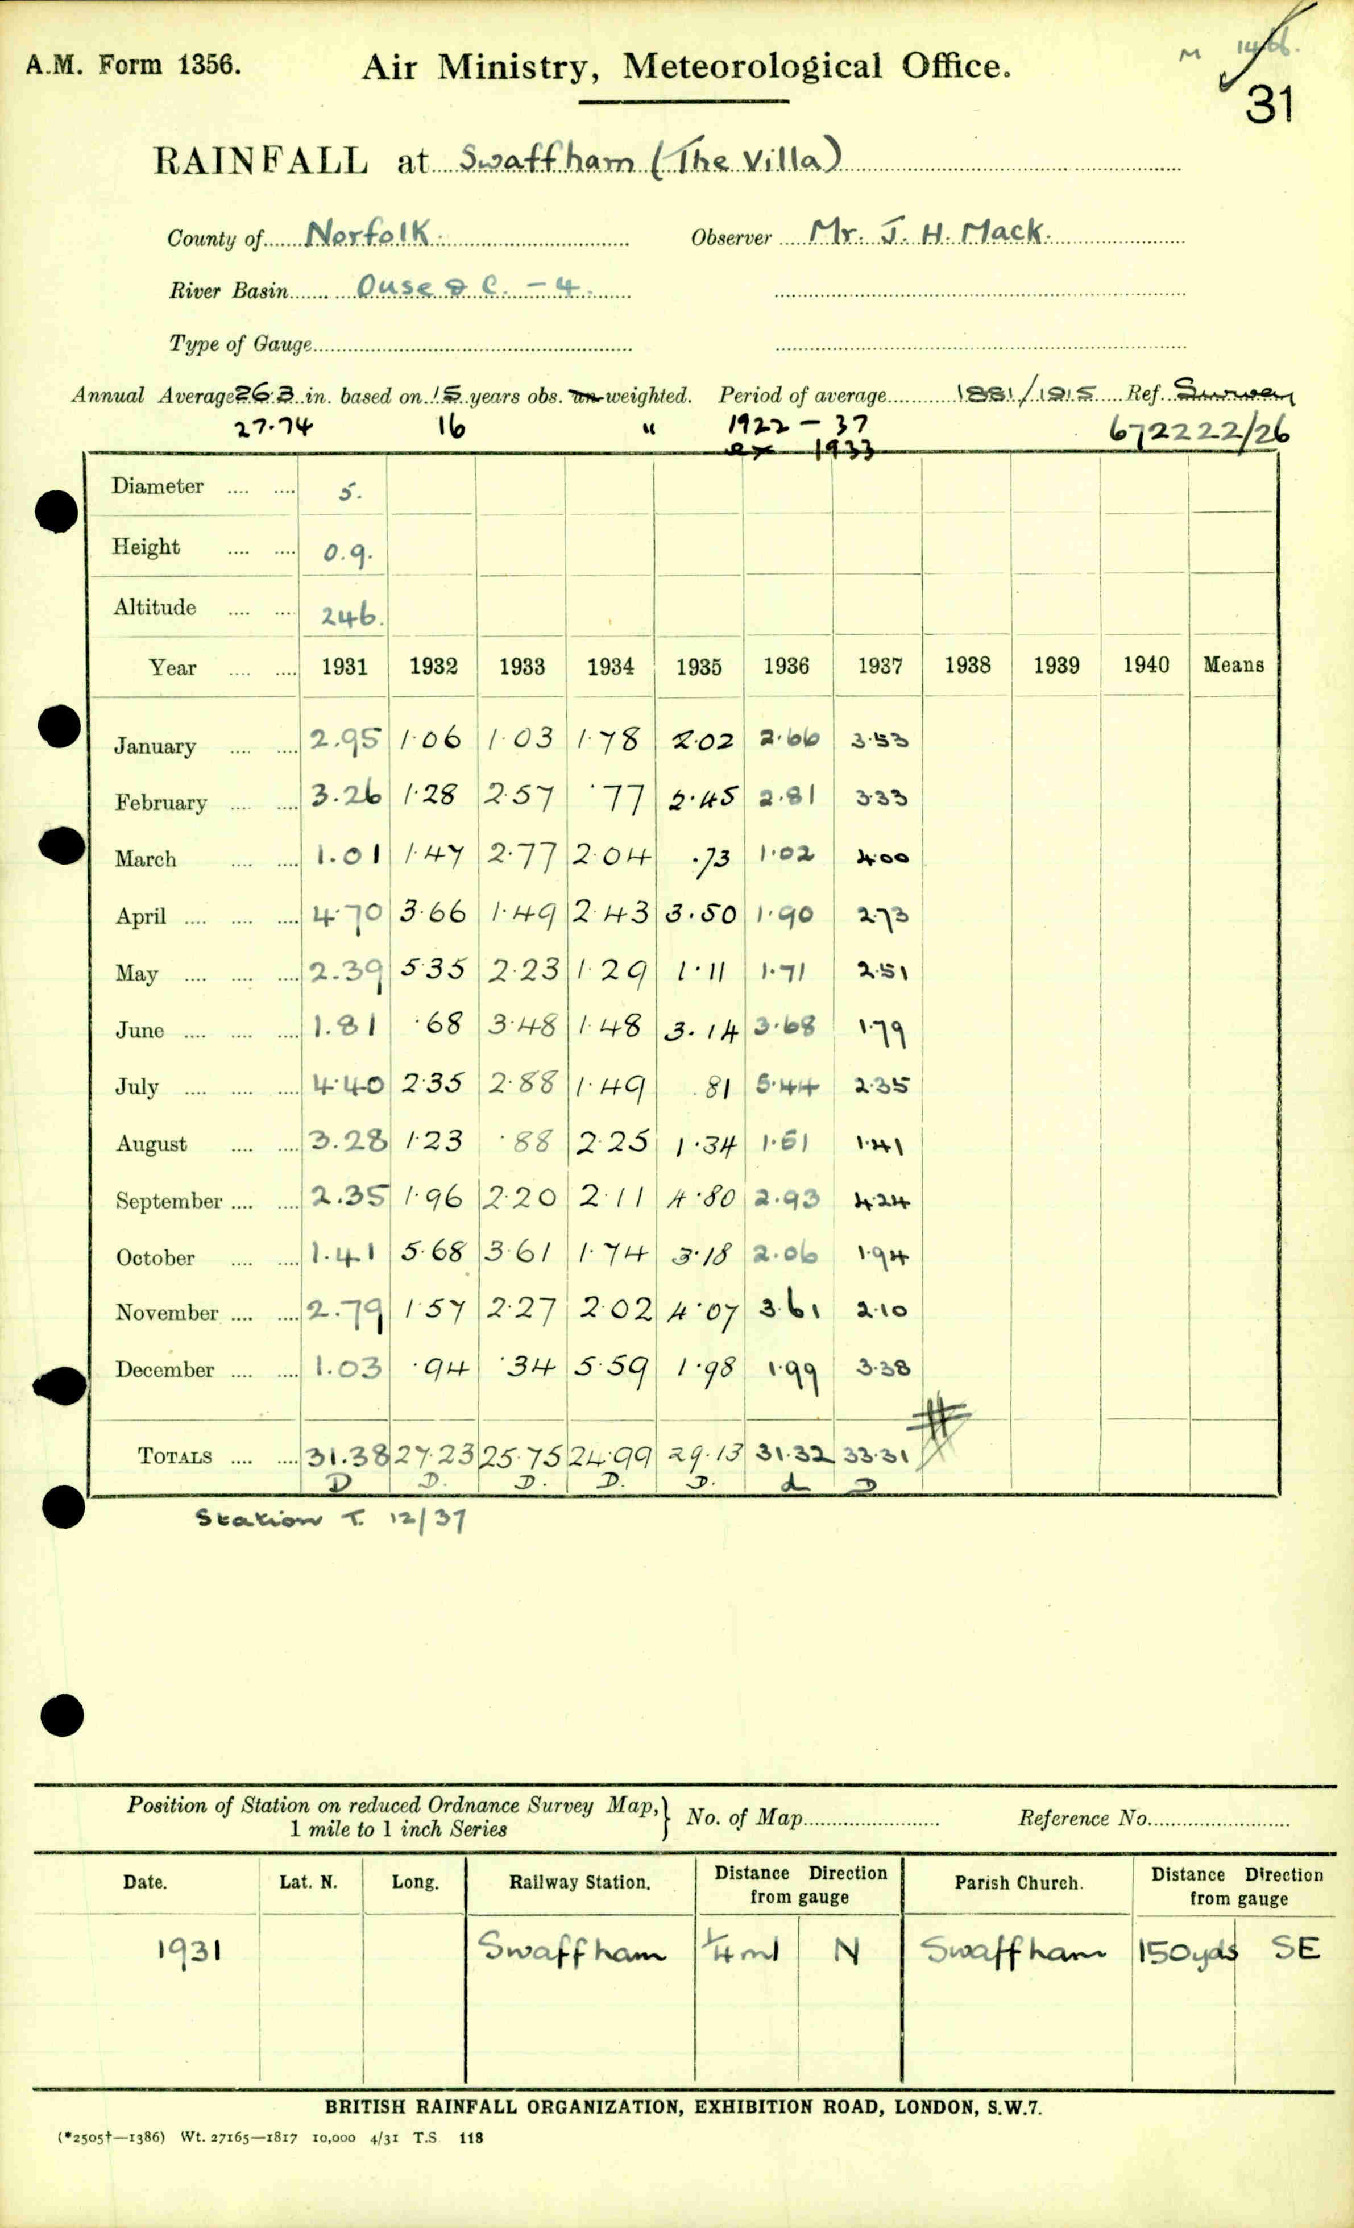 A.M. Form 1356.
Air Ministry, Meteorological Office.
M 1466.
31
RAINFALL at Swaffham (The Villa)
County of Norfolk. Observer Mr. J. H. Mack.
River Basin Ouse & C. - 4.
Type of Gauge
Annual Average 26.3 in. based on 15 years obs. un-weighted. Period of average 1881/1915 Ref. Survey
27.74 16 " 1922 - 37 672222/26
ex 1933
Diameter 5.
Height 0.9.
Altitude 246.
Year 1931 1932 1933 1934 1935 1936 1937 1938 1939 1940 Means
January 2.95 1.06 1.03 1.78 2.02 2.66 3.53
February 3.26 1.28 2.57 .77 2.45 2.81 3.33
March 1.01 1.47 2.77 2.04 .73 1.02 4.00
April 4.70 3.66 1.49 2.43 3.50 1.90 2.73
May 2.39 5.35 2.23 1.29 1.11 1.71 2.51
June 1.81 .68 3.48 1.48 3.14 3.68 1.79
July 4.40 2.35 2.88 1.49 .81 5.44 2.35
August 3.28 1.23 .88 2.25 1.34 1.51 1.41
September 2.35 1.96 2.20 2.11 4.80 2.93 4.24
October 1.41 5.68 3.61 1.74 3.18 2.06 1.94
November 2.79 1.57 2.27 2.02 4.07 3.61 2.10
December 1.03 .94 .34 5.59 1.98 1.99 3.38
TOTALS 31.38 27.23 25.75 24.99 29.13 31.32 33.31
D D. D. D. D. d D
Station T. 12/37
Position of Station on reduced Ordnance Survey Map, } No. of Map Reference No.
1 mile to 1 inch Series
Date. Lat. N. Long. Railway Station. Distance Direction from gauge Parish Church. Distance Direction from gauge
1931 Swaffham 1/4 ml N Swaffham 150yds SE
BRITISH RAINFALL ORGANIZATION, EXHIBITION ROAD, LONDON, S.W.7.
(*2505†—1386) Wt. 27165—1817 10,000 4/31 T.S. 118